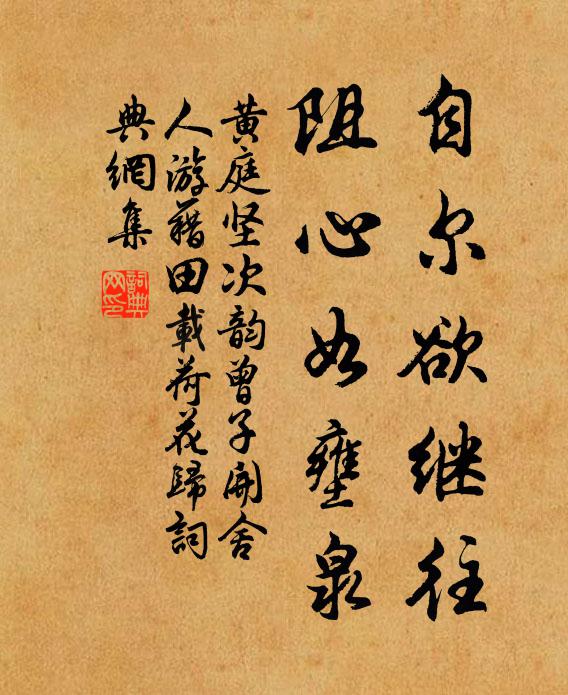 自尔欲继往
阻心如壅泉
黄庭坚次韵曾子開舍
人游藉田載荷花歸詞
典網集
詞典
网印